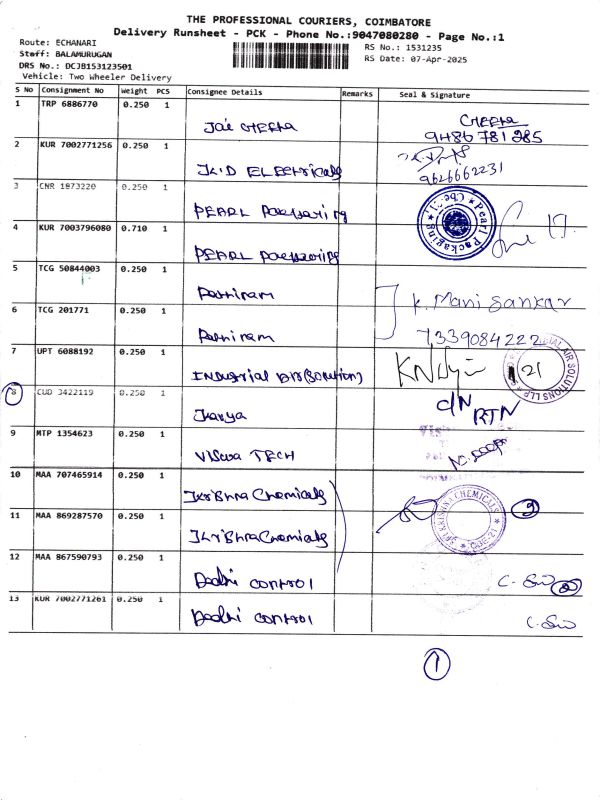 THE PROFESSIONAL COURIERS, COIMBATORE
Delivery Runsheet - PCK - Phone No.:9047080280 - Page No.:1
Route: ECHANARI
Staff: BALAMURUGAN
DRS No.: DCJB153123501
Vehicle: Two Wheeler Delivery
RS No.: 1531235
RS Date: 07-Apr-2025
S No Consignment No Weight PCS Consignee Details Remarks Seal & Signature
1 TRP 6886770 0.250 1 Jai GEETA
9486781285
2 KUR 7002771256 0.250 1 J.K.D ELECtricals
9626662231
3 CNR 1873220 0.250 1 PEARL Packaging
Pearl Packaging
4 KUR 7003796080 0.710 1 PEARL Packaging
5 TCG 50844003 0.250 1 K. Mani Sankar
6 TCG 201771 0.250 1
7339084222
7 UPT 6088192 0.250 1 INDUStrial AIR(Solution)
AIR SOLUTIONS LLP
21
8 CUD 3422119 0.250 1 Karya D/N RTN
9 MTP 1354623 0.250 1 Viswa TECH
10 MAA 707465914 0.250 1 KriShna Chemicals
SRI KRISHNA CHEMICALS
11 MAA 869287570 0.250 1 KriShna Chemicals
12 MAA 867590793 0.250 1 CONtROl
13 KUR 7002771261 0.250 1 CONtROl
1